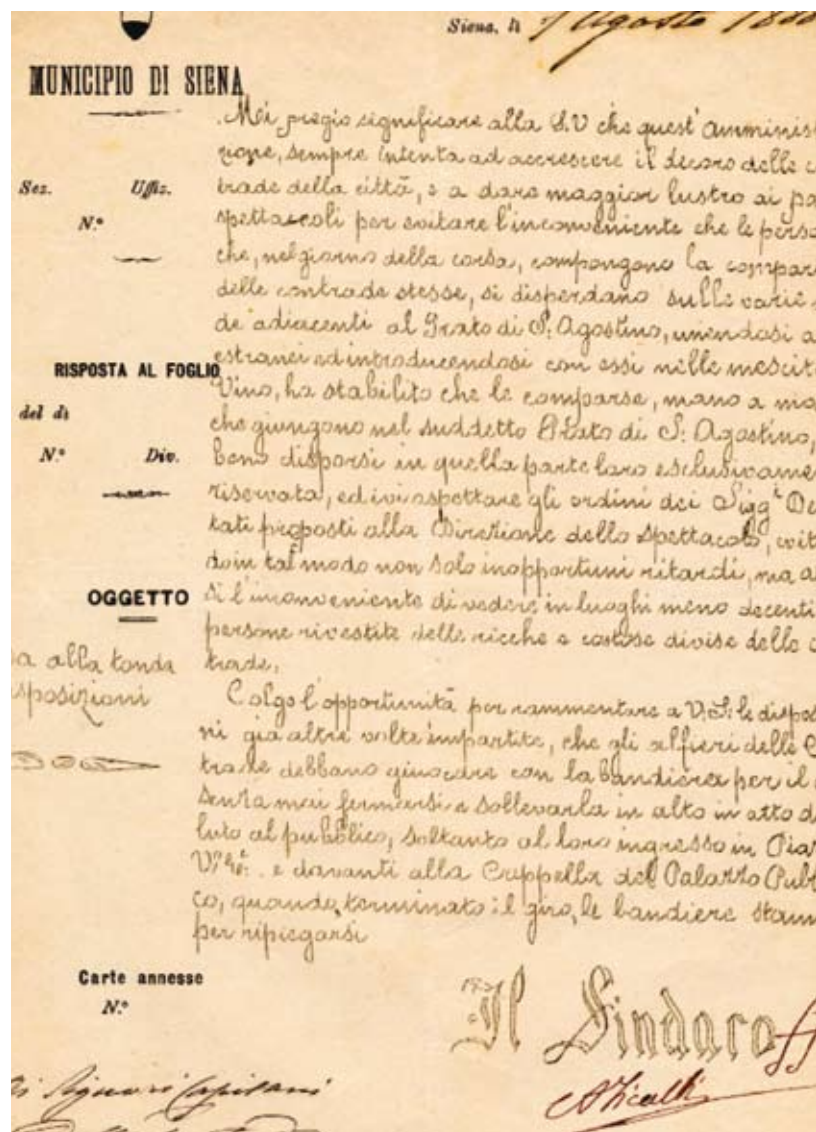 Siena, lì 7 Agosto 188
MUNICIPIO DI SIENA
Mi pregio significare alla S.V che quest' amminis
zione, sempre intenta ad accrescere il decoro delle c
trade della città, e a dare maggior lustro ai pa
spettacoli per evitare l'inconveniente che le perso
che, nel giorno della corsa, compongono la compar
delle contrade stesse, si disperdano sulle varie
de adiacenti al Prato di S. Agostino, unendosi a
estranei ed introducendosi con essi nelle mescit
Vino, ha stabilito che le comparse, mano a ma
che giungono nel suddetto Prato di S. Agostino,
bono disporsi in quella parte loro esclusivame
riservata, ed ivi aspettare gli ordini dei Sigg.i De
tati preposti alla Direzione dello Spettacolo, evit
do in tal modo non solo inopportuni ritardi, ma a
si l'inconveniente di vedere in luoghi meno decenti
persone rivestite delle ricche e costose divise delle c
trade.
Colgo l'opportunità per rammentare a V.S. le dispos
ni già altre volte impartite, che gli alfieri delle C
trade debbano giuocare con la bandiera per il
senza mai fermarsi e sollevarla in alto in atto d
luto al pubblico, soltanto al loro ingresso in Piaz
V.º E.e e davanti alla Cappella del Palazzo Pubb
co, quando, terminato il giro, le bandiere stan
per ripiegarsi
Sez. Uffiz.
N.º
RISPOSTA AL FOGLIO
del dì
N.º Div.
OGGETTO
a alla tonda
sposizioni
Carte annesse
N.º
Il Sindaco
Signori Capitani